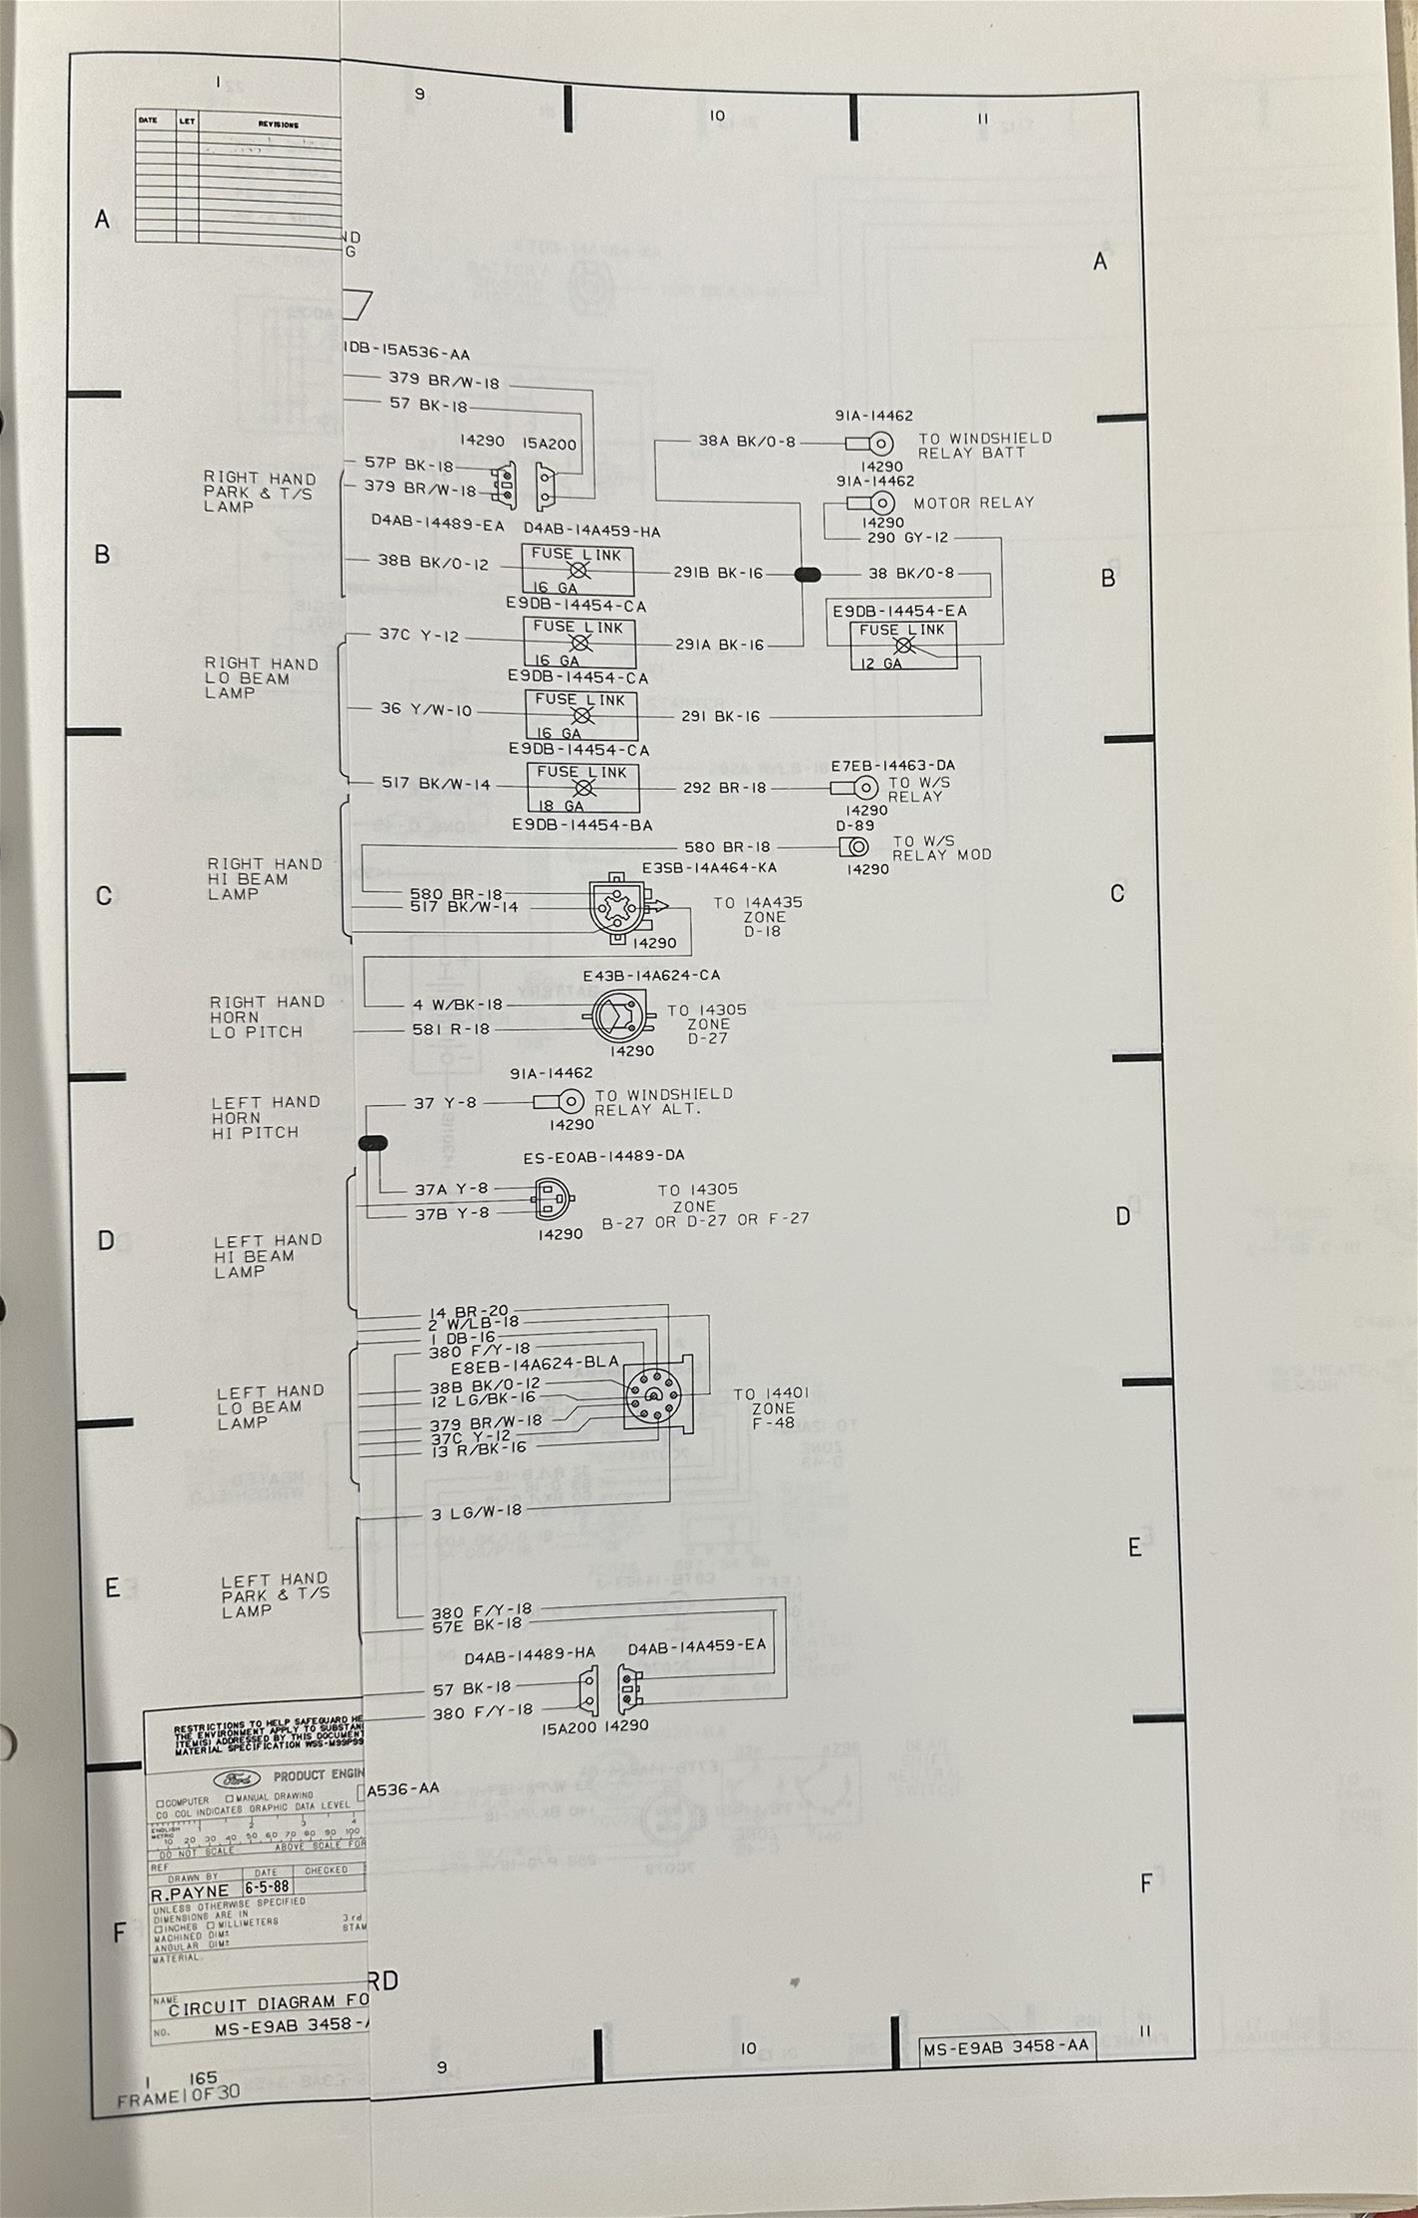 1
9
10
11
DATE LET REVISIONS
A
ND
G
A
1DB-15A536-AA
379 BR/W-18
57 BK-18
14290 15A200
57P BK-18
379 BR/W-18
D4AB-14489-EA D4AB-14A459-HA
RIGHT HAND
PARK & T/S
LAMP
91A-14462
38A BK/O-8
TO WINDSHIELD
RELAY BATT
14290
91A-14462
MOTOR RELAY
14290
290 GY-12
B
38B BK/O-12
FUSE LINK
16 GA
E9DB-14454-CA
291B BK-16
38 BK/O-8
B
E9DB-14454-EA
FUSE LINK
12 GA
37C Y-12
FUSE LINK
16 GA
E9DB-14454-CA
291A BK-16
RIGHT HAND
LO BEAM
LAMP
36 Y/W-10
FUSE LINK
16 GA
E9DB-14454-CA
291 BK-16
517 BK/W-14
FUSE LINK
18 GA
E9DB-14454-BA
292 BR-18
E7EB-14463-DA
TO W/S
RELAY
14290
D-89
580 BR-18
TO W/S
RELAY MOD
14290
RIGHT HAND
HI BEAM
LAMP
C
E3SB-14A464-KA
580 BR-18
517 BK/W-14
14290
TO 14A435
ZONE
D-18
C
E43B-14A624-CA
RIGHT HAND
HORN
LO PITCH
4 W/BK-18
581 R-18
TO 14305
ZONE
D-27
14290
91A-14462
LEFT HAND
HORN
HI PITCH
37 Y-8
TO WINDSHIELD
RELAY ALT.
14290
ES-E0AB-14489-DA
37A Y-8
37B Y-8
14290
TO 14305
ZONE
B-27 OR D-27 OR F-27
D
D
LEFT HAND
HI BEAM
LAMP
14 BR-20
2 W/LB-18
1 DB-16
380 F/Y-18
E8EB-14A624-BLA
38B BK/O-12
12 LG/BK-16
379 BR/W-18
37C Y-12
13 R/BK-16
TO 14401
ZONE
F-48
LEFT HAND
LO BEAM
LAMP
3 LG/W-18
E
E
LEFT HAND
PARK & T/S
LAMP
380 F/Y-18
57E BK-18
D4AB-14489-HA D4AB-14A459-EA
57 BK-18
380 F/Y-18
15A200 14290
RESTRICTIONS TO HELP SAFEGUARD HE
THE ENVIRONMENT APPLY TO SUBSTAN
ITEM(S) ADDRESSED BY THIS DOCUMENT
MATERIAL SPECIFICATION WSS-M99P99
Ford PRODUCT ENGIN
A536-AA
COMPUTER MANUAL DRAWING
CG COL INDICATES GRAPHIC DATA LEVEL
ENGLISH 1 2 3 4
METRIC 10 20 30 40 50 60 70 80 90 100
DO NOT SCALE ABOVE SCALE FOR
REF
DRAWN BY DATE CHECKED
R.PAYNE 6-5-88
UNLESS OTHERWISE SPECIFIED
DIMENSIONS ARE IN
INCHES MILLIMETERS 3rd
MACHINED DIM± STAM
ANGULAR DIM±
MATERIAL
F
F
RD
NAME CIRCUIT DIAGRAM FO
NO. MS-E9AB 3458-A
1 165
FRAME 1 OF 30
9
10
MS-E9AB 3458-AA
11